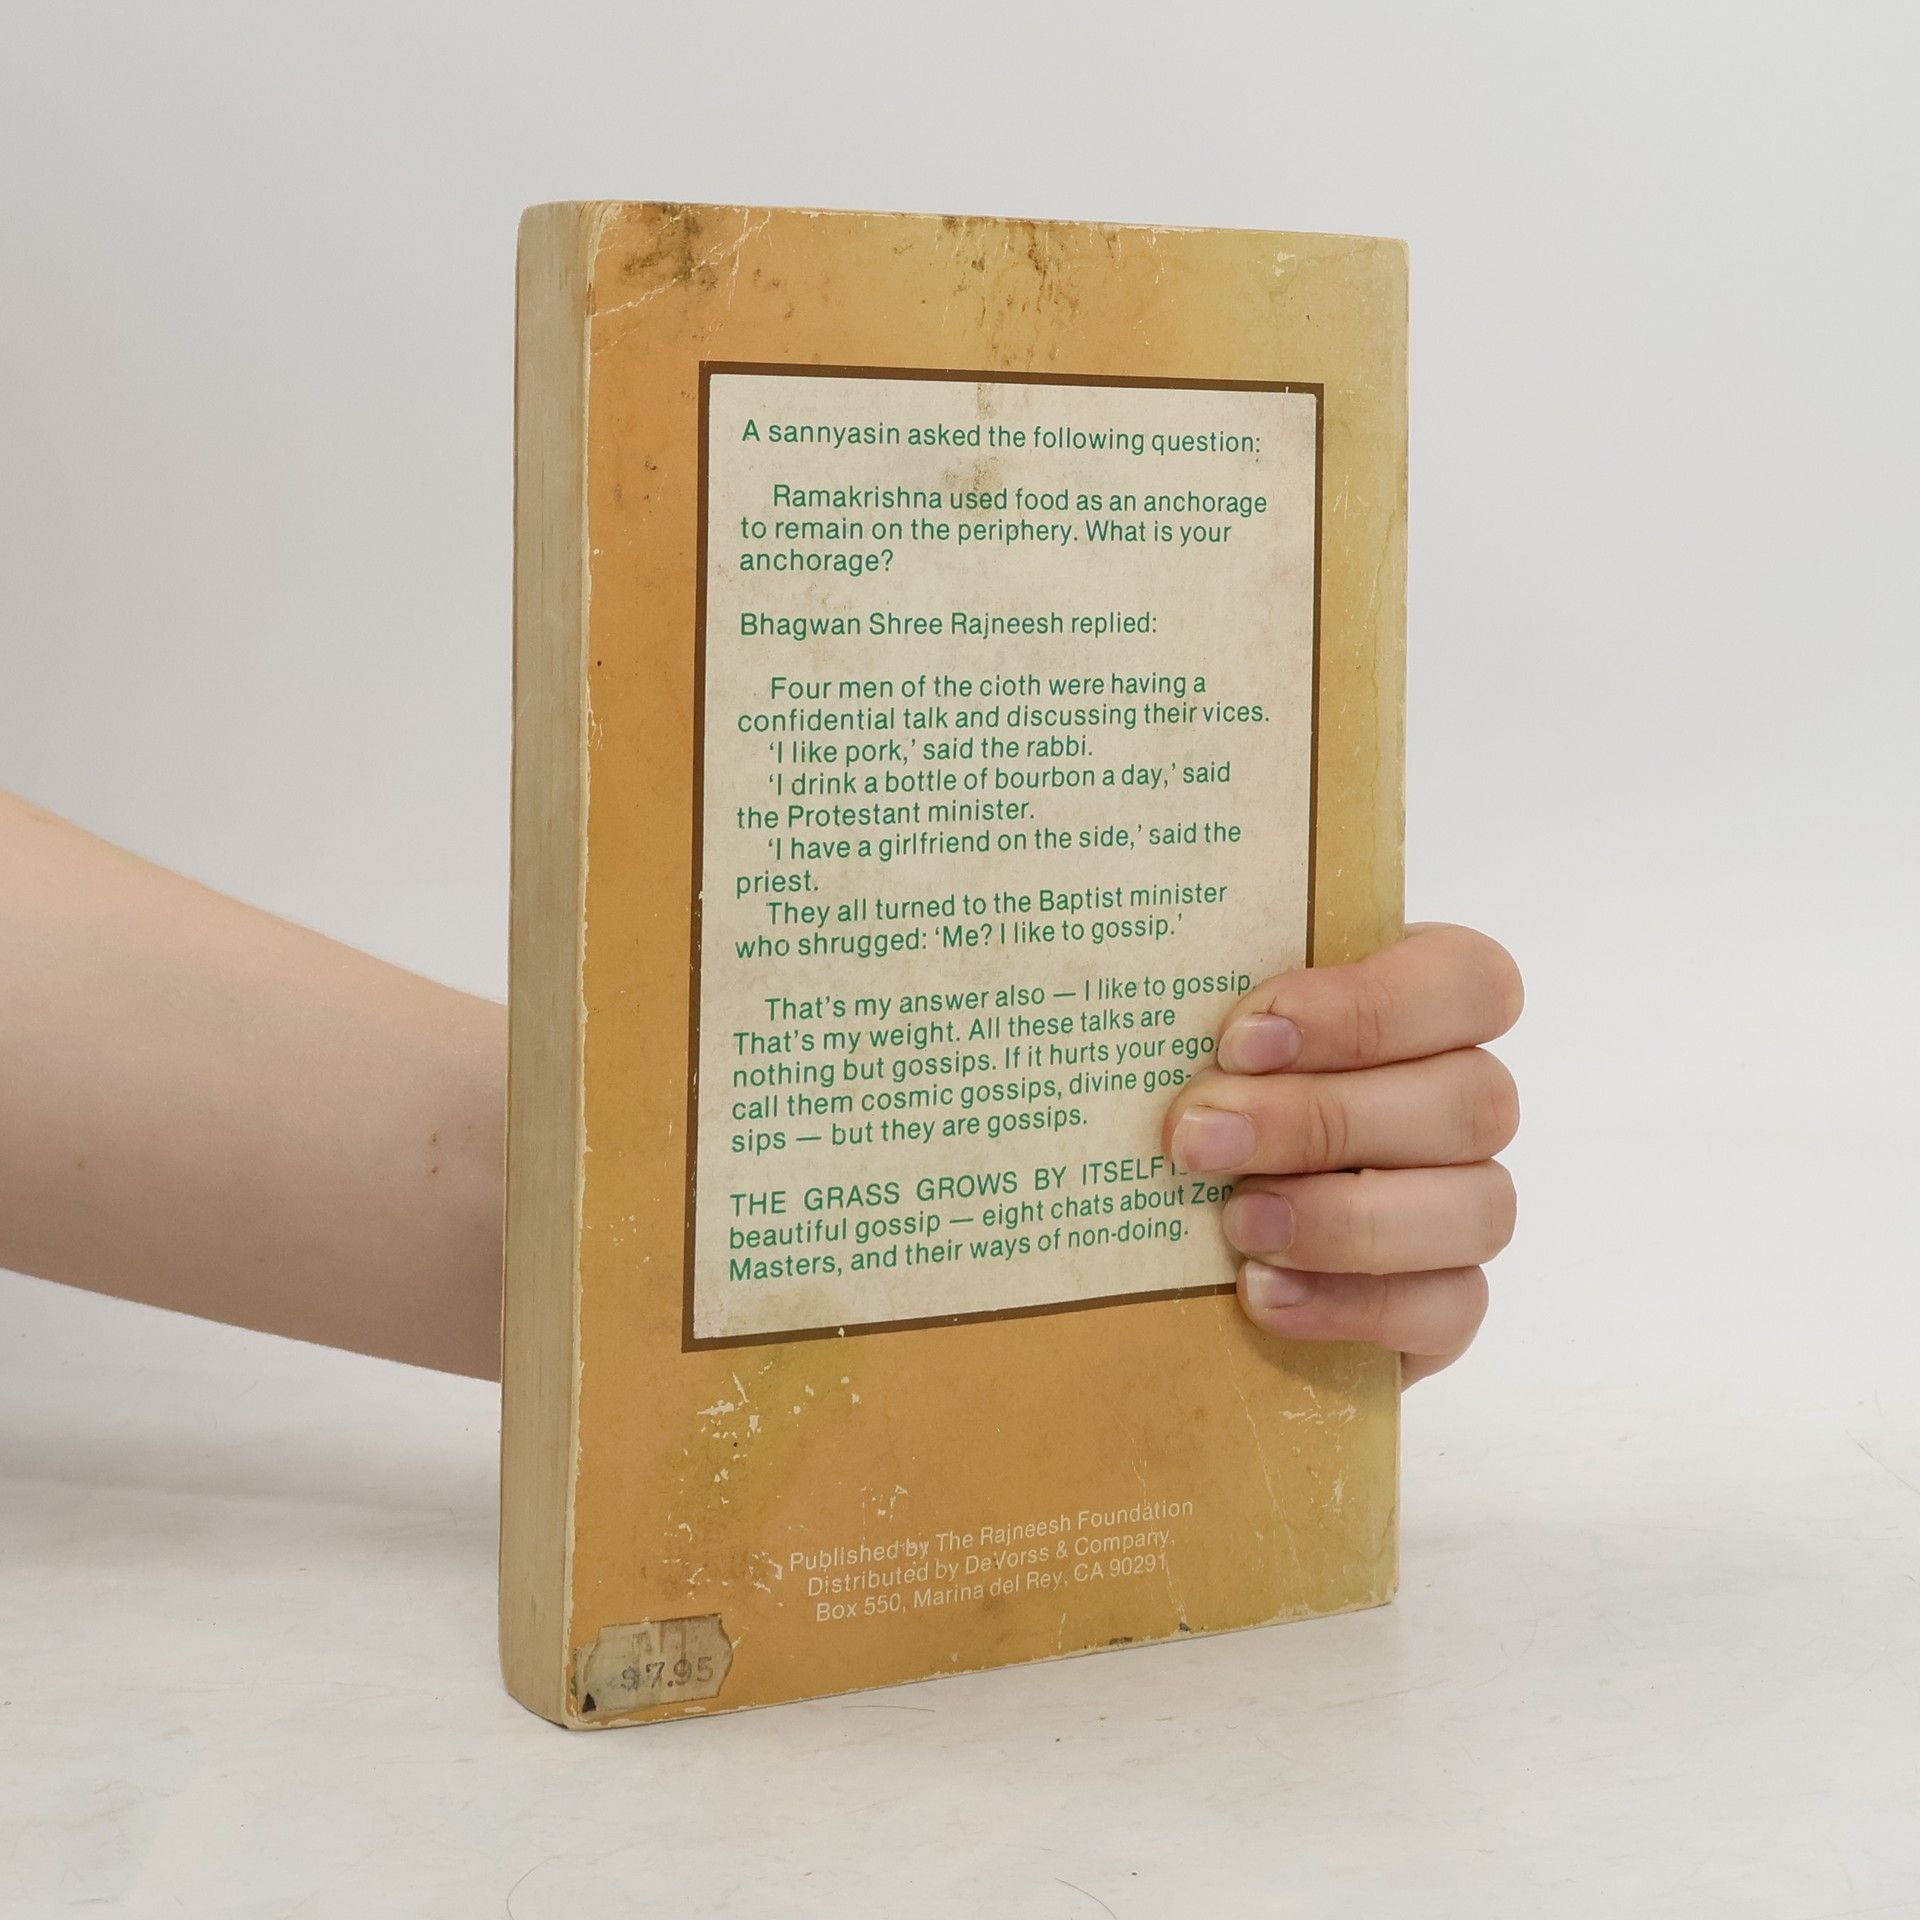 A sannyasin asked the following question:
Ramakrishna used food as an anchorage
to remain on the periphery. What is your
anchorage?
Bhagwan Shree Rajneesh replied:
Four men of the cloth were having a
confidential talk and discussing their vices.
'I like pork,' said the rabbi.
'I drink a bottle of bourbon a day,' said
the Protestant minister.
'I have a girlfriend on the side,' said the
priest.
They all turned to the Baptist minister
who shrugged: 'Me? I like to gossip.'
That's my answer also — I like to gossip.
That's my weight. All these talks are
nothing but gossips. If it hurts your ego,
call them cosmic gossips, divine gos-
sips — but they are gossips.
THE GRASS GROWS BY ITSELF
beautiful gossip — eight chats about Zen
Masters, and their ways of non-doing.
Published by The Rajneesh Foundation
Distributed by DeVorss & Company,
Box 550, Marina del Rey, CA 90291
$7.95